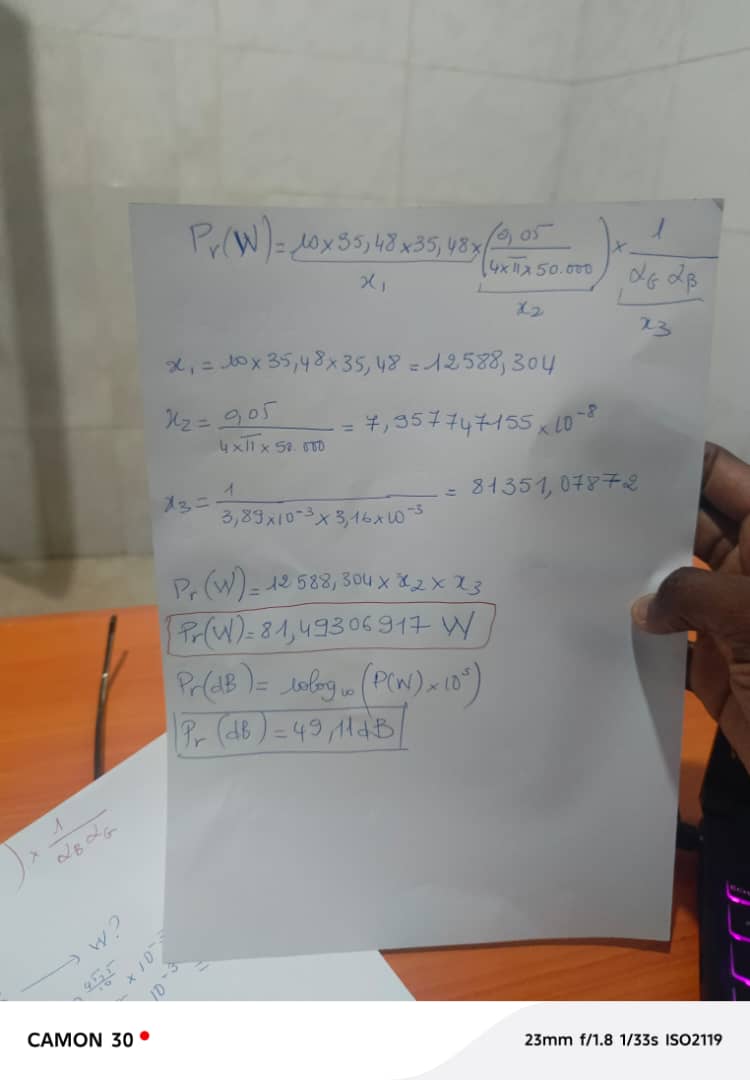 Pr(W) = 10 x 35,48 x 35,48 x (0,05 / 4 x π x 50.000) x 1 / αG αB
x1
x2
x3
x1 = 10 x 35,48 x 35,48 = 12588,304
x2 = 0,05 / 4 x π x 50.000 = 7,957747155 x 10^-8
x3 = 1 / 3,89x10^-3 x 3,16x10^-3 = 81351,07872
Pr(W) = 12588,304 x x2 x x3
Pr(W) = 81,49306917 W
Pr(dB) = 10log10 (P(W) x 10^3)
Pr (dB) = 49,11dB
) x 1 / αB αG
→ W?
x 10^-3
10^-3
CAMON 30
23mm f/1.8 1/33s ISO2119